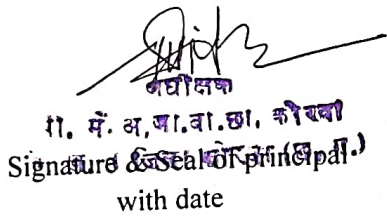 अधीक्षक
शा. में. अ.जा.बा.छा. कोरबा
Signature & Seal of principal
with date